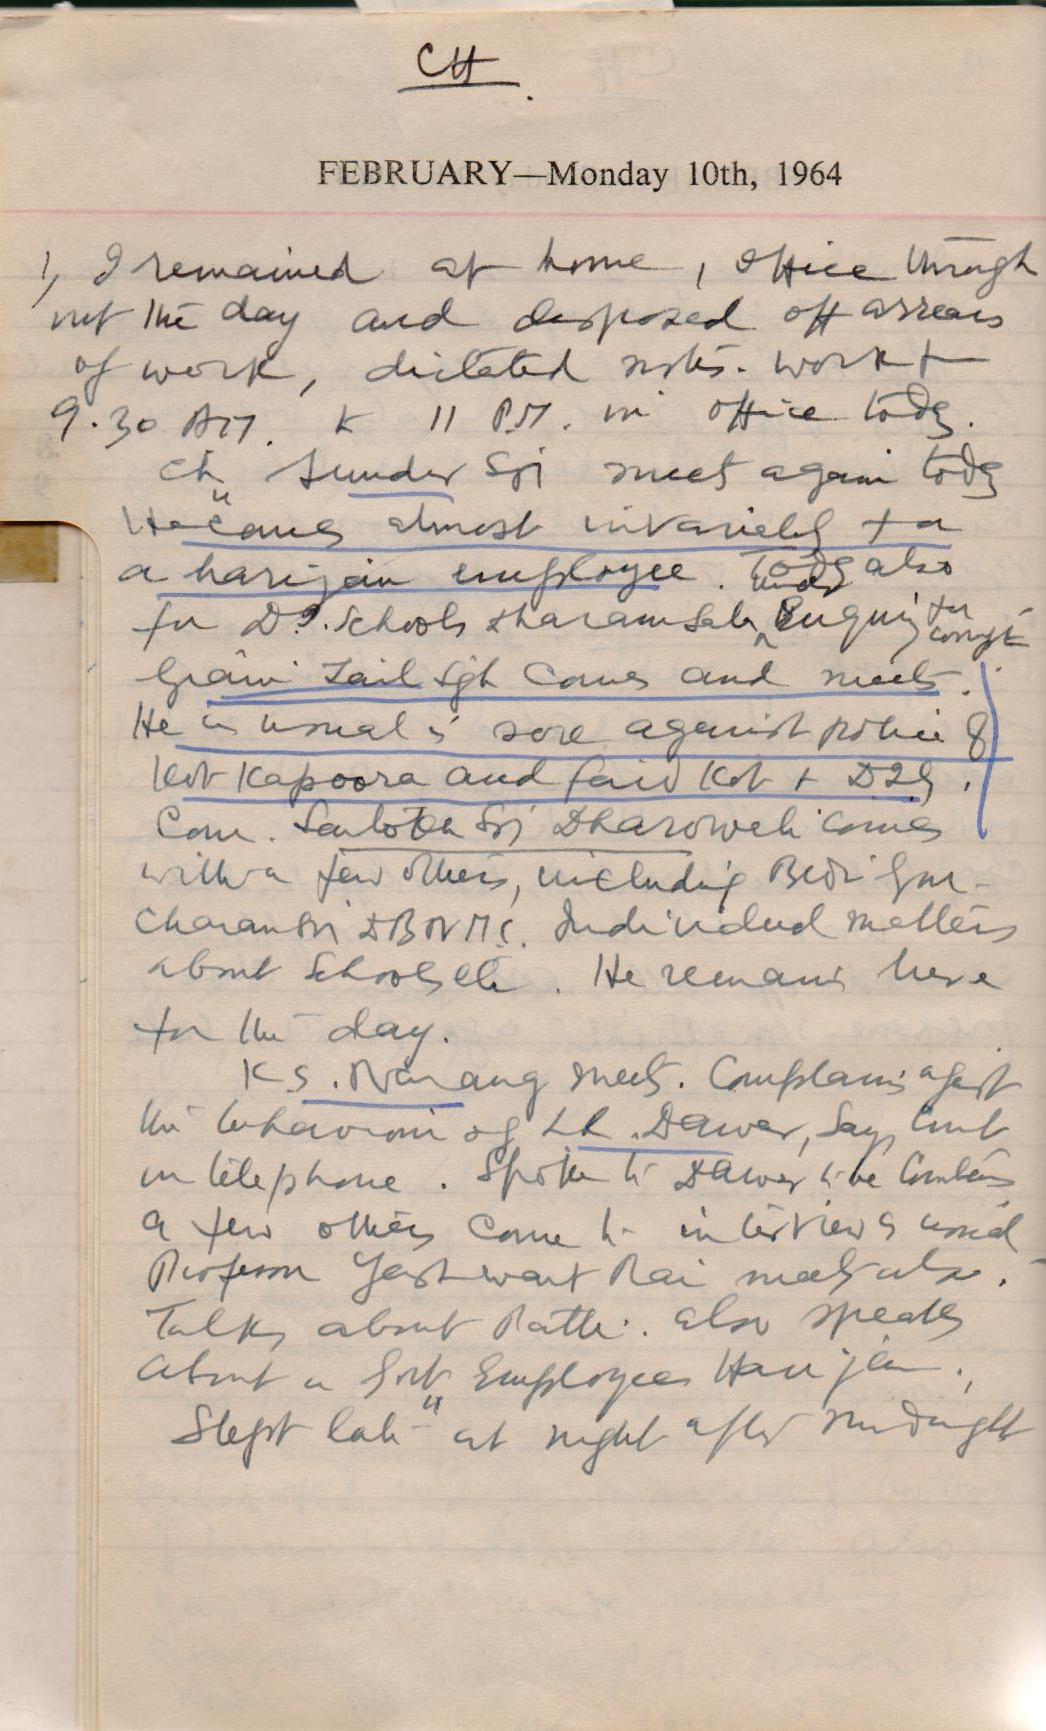 CH
FEBRUARY—Monday 10th, 1964
1, I remained at home, office through
out the day and disposed off arrears
of work, dictated notes. work f
9.30 AM. to 11 P.M. in office today.
Ch. Sunder Sgh meets again today
He comes almost invariably for
a harijan employee. Today also
for D.I. Schools Dharamsala, under Enquiry for
Giani Zail Sgh comes and meets.
He as usual is sore against police of
Kot Kapoora and Farid Kot + DIG.
Com. Dharowali comes
with a few others, including Bedi Gur-
charan Individual matters
about Schools etc. He remains here
for the day.
K S. Narang meets. Complains against
the behaviour of Lt. Dawer, Says curt
in telephone. Spoke to Dawer to be
a few others come to interview as usual
Professor Yashwant Rai meets also.
Talks about also speaks
about a Govt Employee Harijan.
Slept late at night after midnight